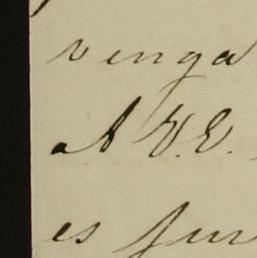 venga
A V.E.
es fun